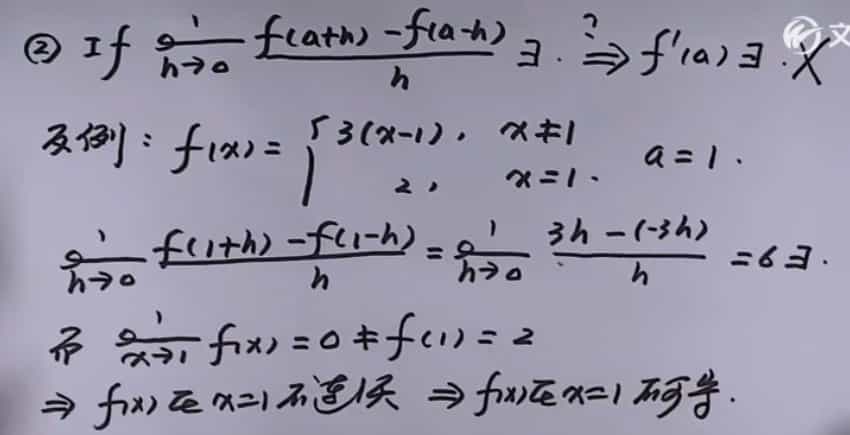 ② If lim h→0 (f(a+h) - f(a-h))/h ∃. ?⇒ f'(a) ∃. ✗ 文
反例: f(x) = { 3(x-1), x≠1
2, x=1. a=1.
lim h→0 (f(1+h) - f(1-h))/h = lim h→0 (3h - (-3h))/h = 6 ∃.
而 lim x→1 f(x) = 0 ≠ f(1) = 2
⇒ f(x)在x=1不连续 ⇒ f(x)在x=1不可导.